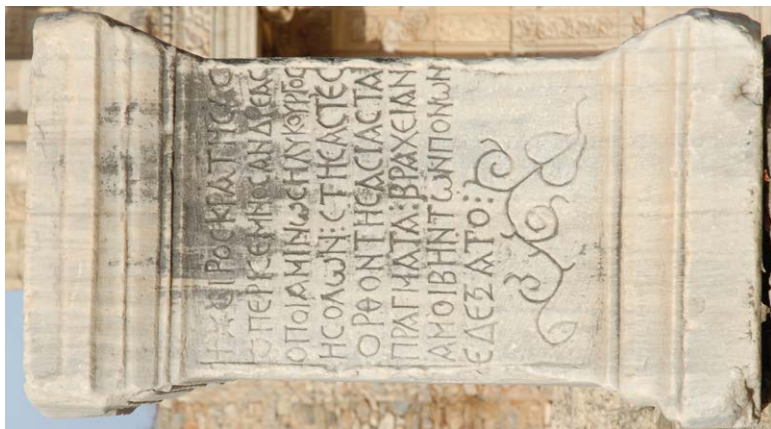 ΙΡΟϹΚΡΑΤΗϹΑϹ
ΥΠΕΡϹΕΜΝΟϹΑΝΔΡΕΑϹ
ΟΠΟΙΑΜΙΝΩϹΗΛΥΚΟΥΡΓΟϹ
ΗϹΟΛΩΝ:ϹΤΗϹΑϹΤΕϹ
ΟΡΘΟΝΤΗϹΑϹΙΑϹΤΑ
ΠΡΑΓΜΑΤΑ:ΒΡΑΧΕΙΑΝ
ΑΜΟΙΒΗΝΤΩΝΠΟΝΩΝ
ΕΔΕΞΑΤΟ: